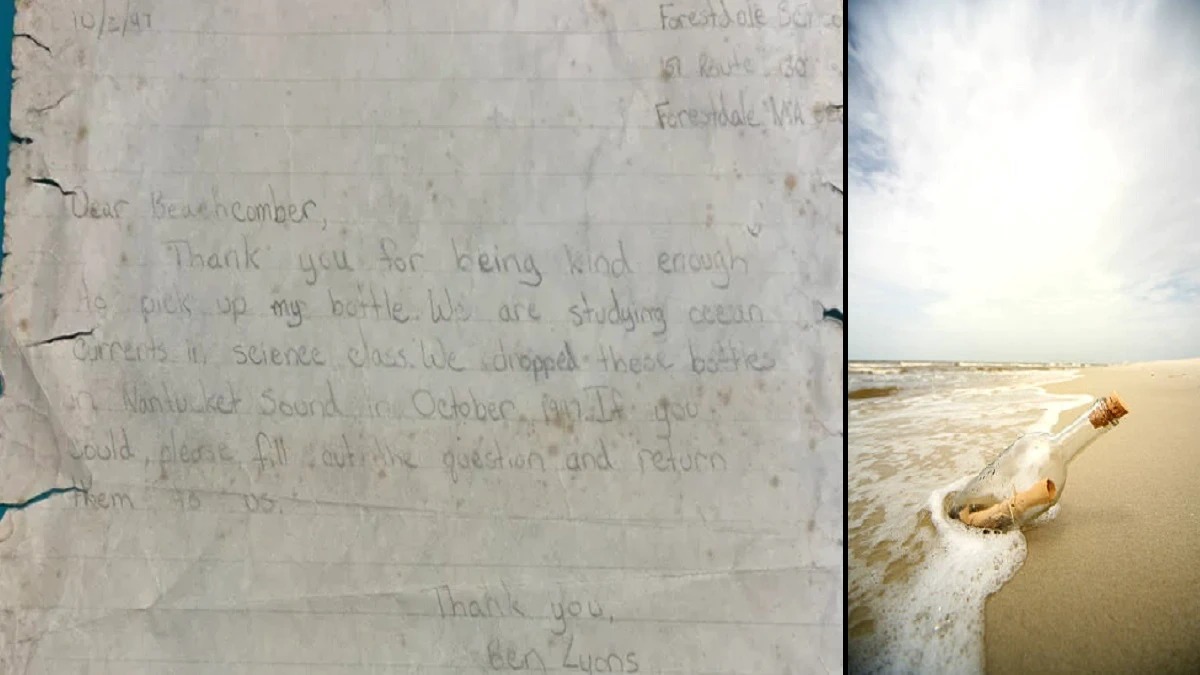 10/2/97
Forestdale
151 Route 130
Forestdale MA
Dear Beachcomber,
Thank you for being kind enough
to pick up my bottle. We are studying ocean
currents in science class. We dropped these bottles
in Nantucket Sound in October, 1997. If you
could, please fill out the question and return
them to us.
Thank you,
Ben Lyons